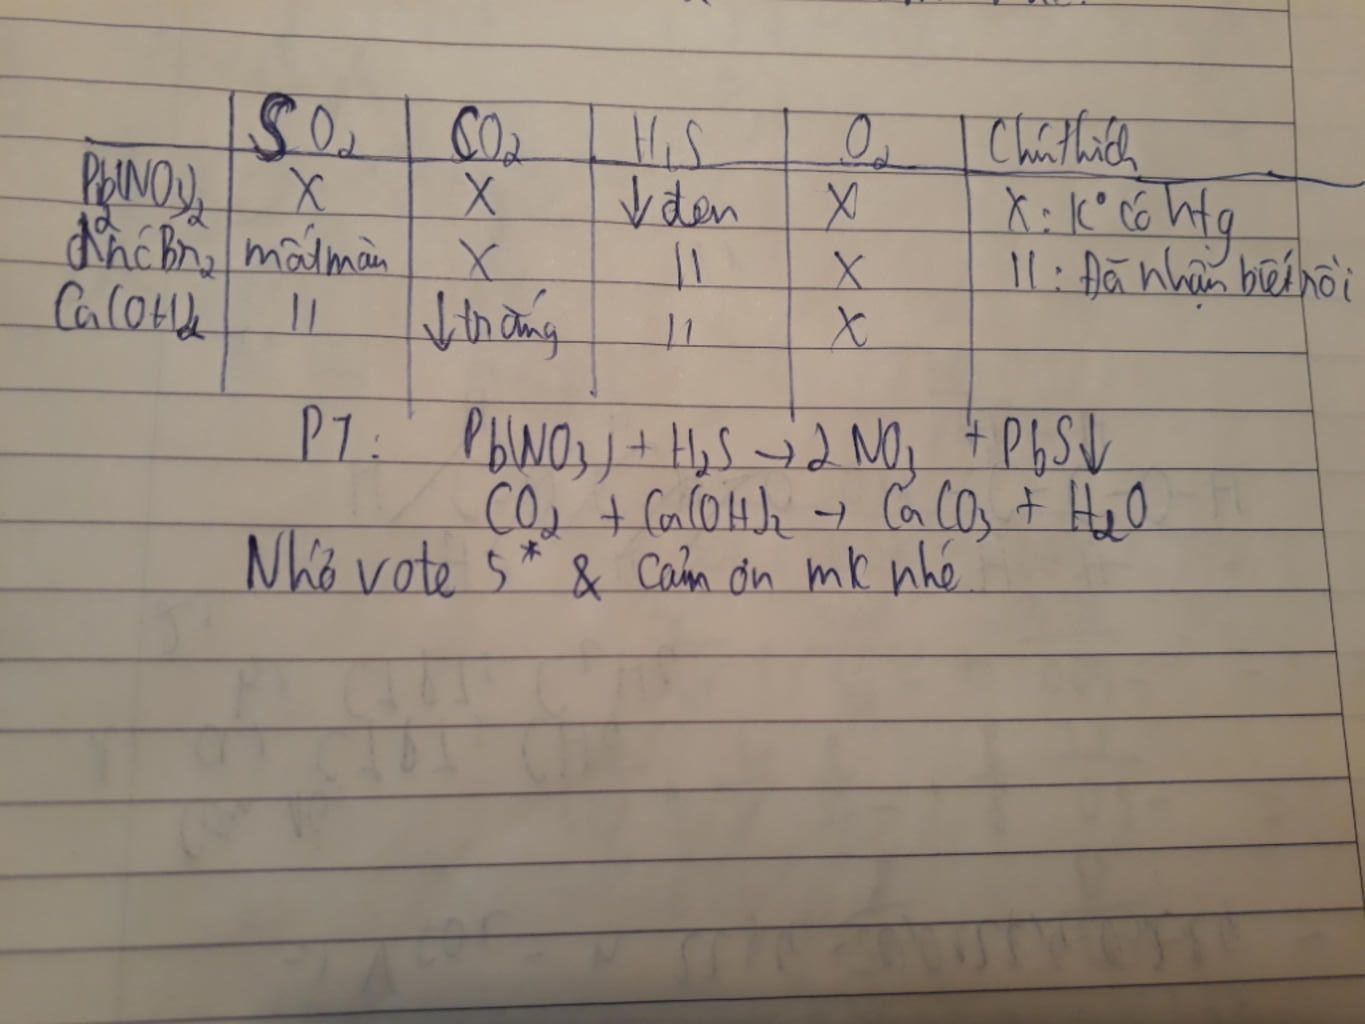 SO2 CO2 H2S O2 Chú thích
Pb(NO3)2 X X ↓ đen X X: K° có htg
d2 nc Br2 mất màu X || X ||: Đã nhận biết rồi
Ca(OH)2 || ↓ trắng || X
PT: Pb(NO3) + H2S → 2 NO3 + PbS↓
CO2 + Ca(OH)2 → CaCO3 + H2O
Nhớ vote 5* & cảm ơn mk nhé